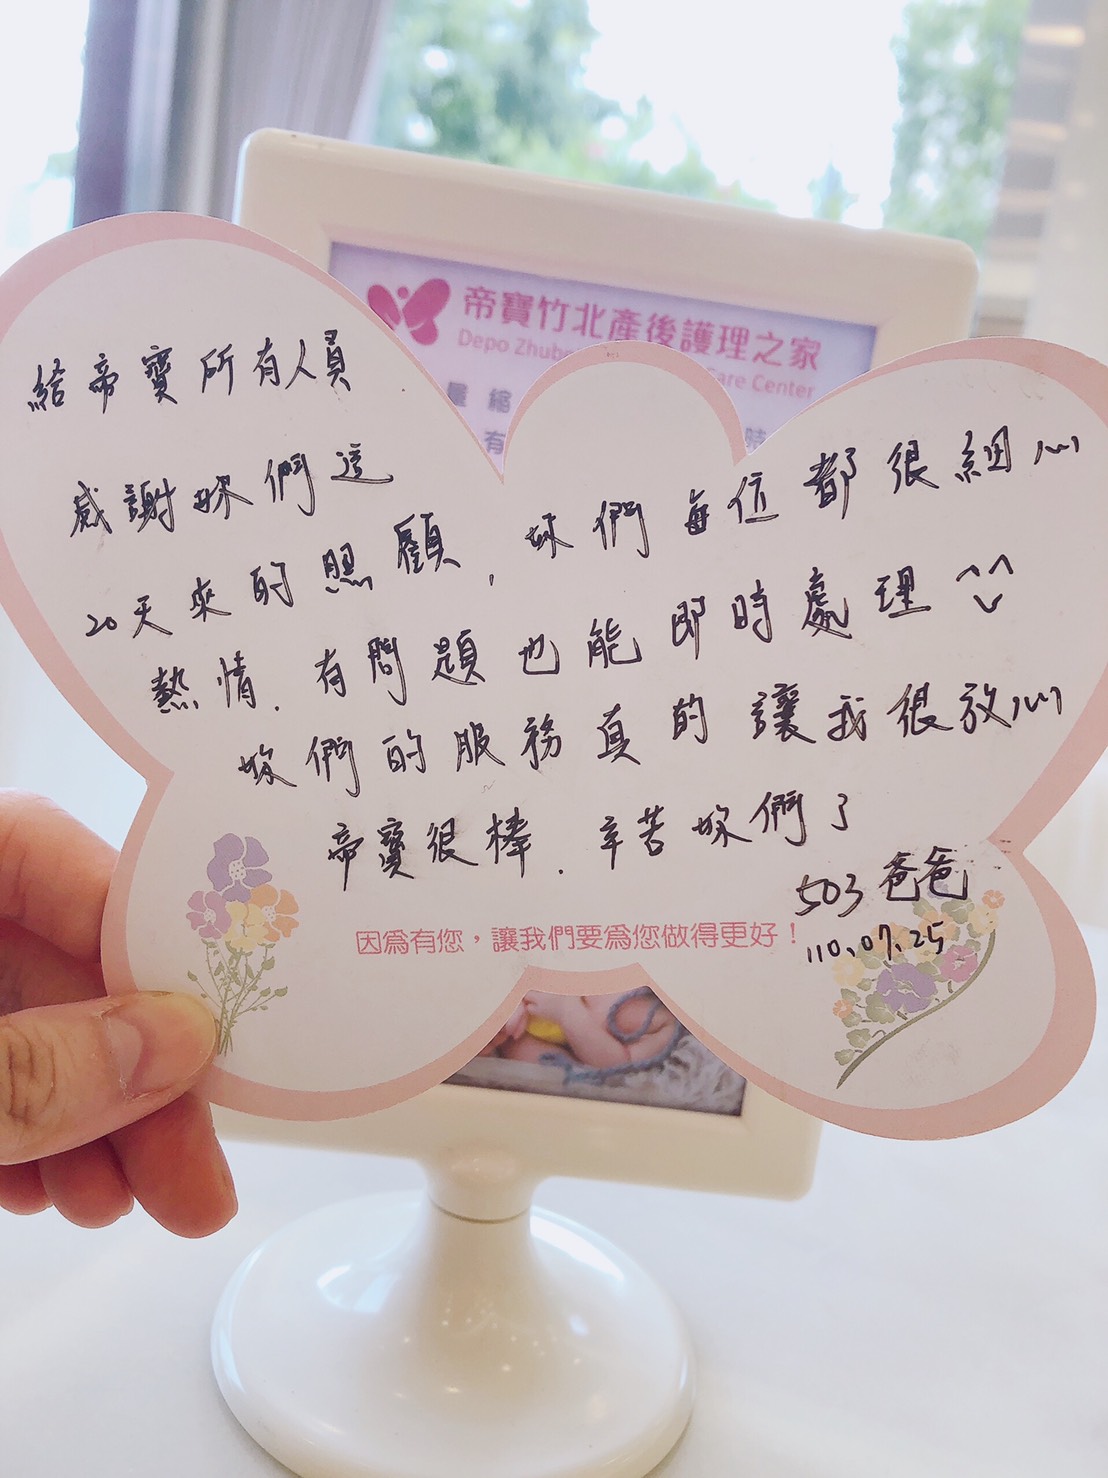 帝寶竹北產後護理之家
Depo Zhub
Care Center
量 縮
有
時
給帝寶所有人員
感謝妳們這
20天來的照顧，妳們每位都很細心
熱情．有問題也能即時處理^^
妳們的服務真的讓我很放心
帝寶很棒．辛苦妳們了
503爸爸
110.07.25
因為有您，讓我們要為您做得更好！